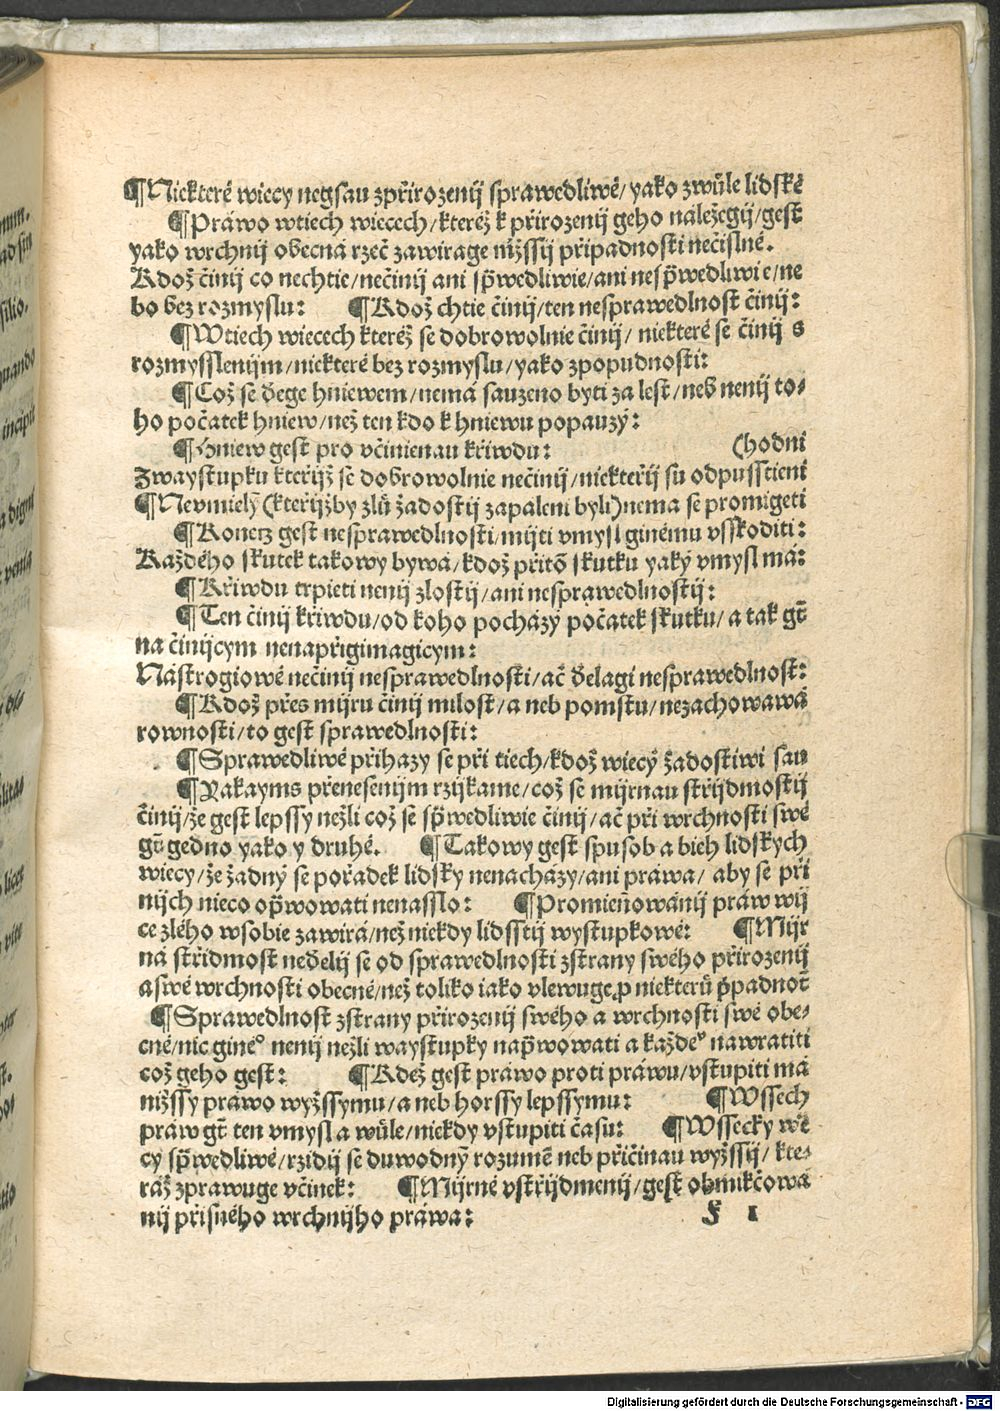 ¶Niekteré wiecy negsau zpřirozenij sprawedliwé/yako zwůle lidské
¶Práwo wtiech wiecech/kteréž k přirozenij geho náležegij/gest
yako wrchnij obecná rzeč zawirage nižssij připadnosti nečislné.
Kdož činij co nechtie/nečinij ani sp̄wedliwie/ani nesp̄wedliwie/ne
bo bez rozmyslu: ¶Kdož chtie činij/ten nesprawedlnost činij:
¶Wtiech wiecech kteréž se dobrowolnie činij/ niekteré se činij s
rozmysslenijm/niekteré bez rozmyslu/yako zpopudnosti:
¶Což se děge hniewem/nemá sauzeno byti za lest/neb nenij to⸗
ho počátek hniew/než ten kdo k hniewu popauzý:
¶Hniew gest pro včinienau křiwdu: (hodni
Zwaystupku kteřijž se dobrowolnie nečinij/niekteřij su odpusstieni
¶Nevmielȳ (kteřijžby zlů žádostij zapáleni byli) nemá se promigeti
¶Konetz gest nesprawedlnosti/mijti vmysl ginému vsskoditi:
Každého skutek takowy bywá/kdož přitō skutku yaký vmysl má:
¶Křiwdu trpieti nenij zlostij/ani nesprawedlnostij:
¶Ten činij křiwdu/od koho pocházý počátek skutku/a tak gt̄
na činijcym nenapřigimagicym:
Nástrogiowé nečinij nesprawedlnosti/ač dělagi nesprawedlnost:
¶Kdož přes mijru činij milost/a neb pomstu/nezachowáwá
rownosti/to gest sprawedlnosti:
¶Sprawedliwé přihazy se při tiech/kdož wiecý žádostiwi sau
¶Yakayms přenesenijm rzijkáme/což se mijrnau střijdmostij
činij/že gest lepssy nežli což se sp̄wedliwie činij/ač při wrchnosti swé
gū gedno yako y druhé. ¶Takowy gest spusob a bieh lidských
wiecy/že žadný se pořádek lidský nenacházý/ani práwa/ aby se při
nijch nieco op̄wowati nenasslo: ¶Promieňowánij práw wij
ce zlého wsobie zawirá/než niekdy lidsstij wystupkowé: ¶Mijr
ná střidmost nedělij se od sprawedlnosti zstrany swého přirozenij
a swé wrchnosti obecné/než toliko iako vlewuge p niekterů p̄padnot̄
¶Sprawedlnost zstrany přirozenij swého a wrchnosti swé obe⸗
cné/nic gineº nenij nežli waystupky nap̄wowati a každeº nawrátiti
což geho gest: ¶Kdež gest práwo proti práwu/vstupiti má
nižssy práwo wyžssymu/a neb horssy lepssymu: ¶Wssech
práw gt̄ ten vmysl a wůle/niekdy vstupiti času: ¶Wssecky wē
cy sp̄wedliwé/rzidij se duwodný rozumē neb přičinau wyžssij/ kte⸗
ráž zprawuge včinek: ¶Mijrné vstřijdmenij/gest obmikčowá
nij přisného wrchnijho práwa:
F 1
Digitalisierung gefördert durch die Deutsche Forschungsgemeinschaft - DFG